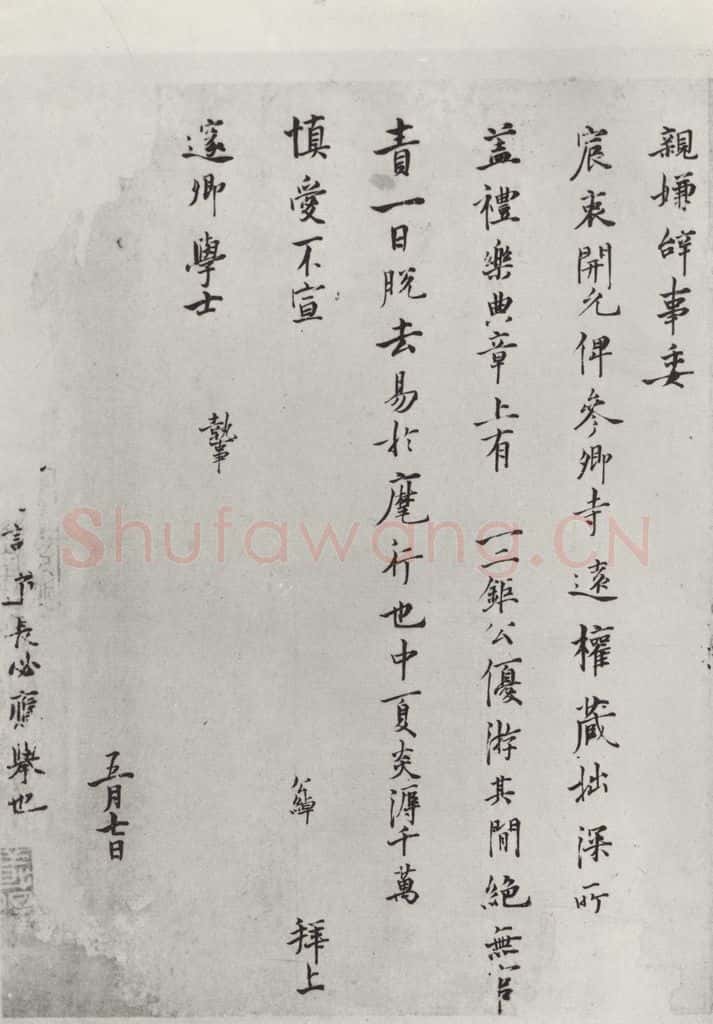 親嫌辭事委
宸衷開允俾參卿寺遠權藏拙深所
蓋禮樂典章上有一二鉅公優游其間絕無官
責一日脫去易於麾行也中夏炎溽千萬
慎愛不宣
拜上
邃卿學士
執事
五月七日
言
長必應舉也
Shufawang.CN